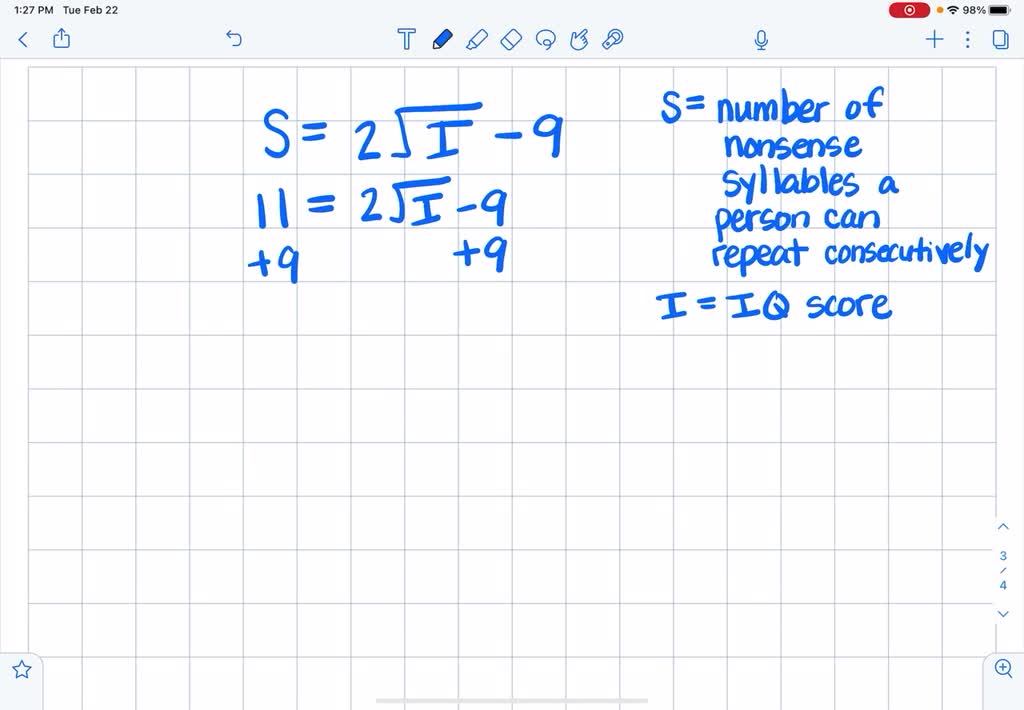 1:27 PM Tue Feb 22
98%
S = 2√I - 9
11 = 2√I - 9
+9 +9
S = number of
nonsense
syllables a
person can
repeat consecutively
I = IQ score
3
/
4